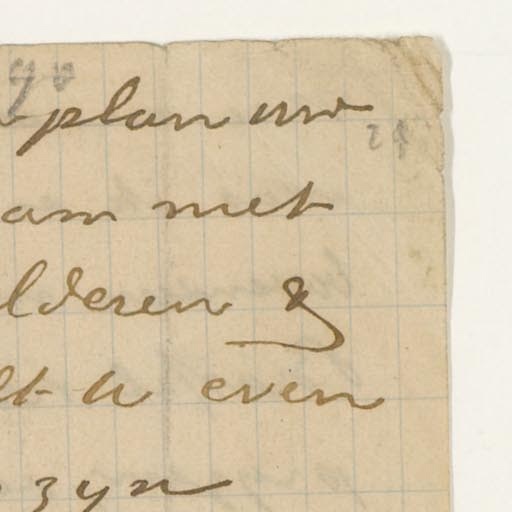 plan uw
am met
lderen &
lt u even
zyn